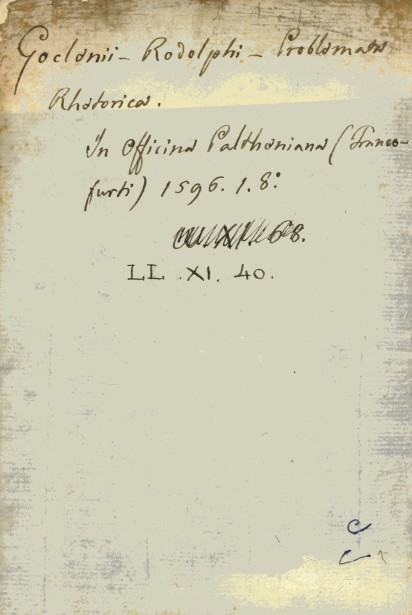 Goclenii - Rodolphi - Problemata
Rhetorica.
In Officina Paltheniana (Franco-
furti) 1596. 1. 8°.
68.
LL .XI. 40.
C
C